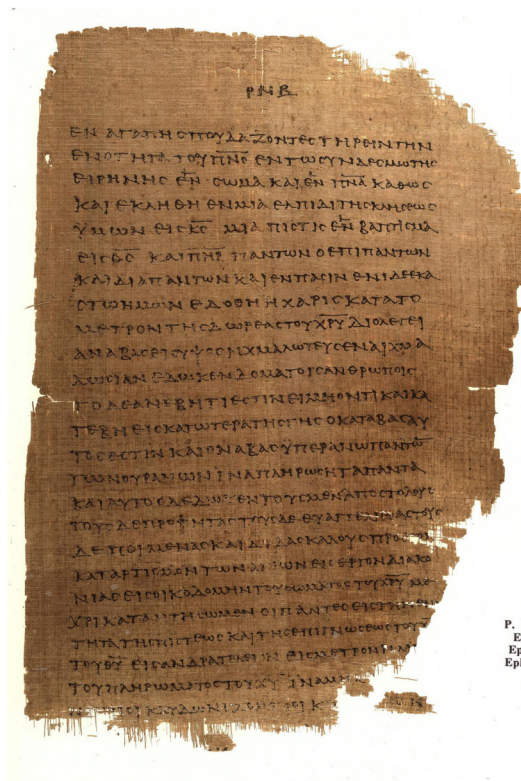 ΡΝΒ
ΕΝ ΑΓΑΠΗ ϹΠΟΥΔΑΖΟΝΤΕϹ ΤΗΡΕΙΝ ΤΗΝ
ΕΝΟΤΗΤΑ ΤΟΥ Π̅Ν̅Ϲ̅ ΕΝ ΤΩ ϹΥΝΔΕϹΜΩ ΤΗϹ
ΕΙΡΗΝΗϹ ΕΝ ϹΩΜΑ ΚΑΙ ΕΝ Π̅Ν̅Α̅ ΚΑΘΩϹ
ΚΑΙ ΕΚΛΗΘΗ ΕΝ ΜΙΑ ΕΛΠΙΔΙ ΤΗϹ ΚΛΗϹΕΩϹ
ΥΜΩΝ ΕΙϹ Κ̅Ϲ̅ ΜΙΑ ΠΙϹΤΙϹ ΕΝ ΒΑΠΤΙϹΜΑ
ΕΙϹ Θ̅Ϲ̅ ΚΑΙ Π̅Η̅Ρ̅ ΠΑΝΤΩΝ Ο ΕΠΙ ΠΑΝΤΩΝ
ΚΑΙ ΔΙΑ ΠΑΝΤΩΝ ΚΑΙ ΕΝ ΠΑϹΙΝ ΕΝΙ ΔΕ ΕΚΑ
ϹΤΩ ΗΜΩΝ ΕΔΟΘΗ Η ΧΑΡΙϹ ΚΑΤΑ ΤΟ
ΜΕΤΡΟΝ ΤΗϹ ΔΩΡΕΑϹ ΤΟΥ Χ̅Ρ̅Υ̅ ΔΙΟ ΛΕΓΕΙ
ΑΝΑΒΑϹ ΕΙϹ ΥΨΟϹ ΗΧΜΑΛΩΤΕΥϹΕΝ ΑΙΧΜΑ
ΛΩϹΙΑΝ ΕΔΩΚΕΝ ΔΟΜΑΤΑ ΤΟΙϹ ΑΝΘΡΩΠΟΙϹ
ΤΟ ΔΕ ΑΝΕΒΗ ΤΙ ΕϹΤΙΝ ΕΙ ΜΗ ΟΤΙ ΚΑΙ ΚΑ
ΤΕΒΗ ΕΙϹ ΚΑΤΩΤΕΡΑ ΤΗϹ ΓΗϹ Ο ΚΑΤΑΒΑϹ ΑΥ
ΤΟϹ ΕϹΤΙΝ ΚΑΙ Ο ΑΝΑΒΑϹ ΥΠΕΡΑΝΩ ΠΑΝΤΩ̅
ΤΩΝ ΟΥΡΑΝΩΝ ΙΝΑ ΠΛΗΡΩϹΗ ΤΑ ΠΑΝΤΑ
ΚΑΙ ΑΥΤΟϹ ΔΕΔΩΚΕΝ ΤΟΥϹ ΜΕΝ ΑΠΟϹΤΟΛΟΥϹ
ΤΟΥϹ ΔΕ ΠΡΟΦΗΤΑϹ ΤΟΥϹ ΔΕ ΕΥΑΓΓΕΛΙϹΤΑϹ ΤΟΥϹ
ΔΕ ΠΟΙΜΕΝΑϹ ΚΑΙ ΔΙΔΑϹΚΑΛΟΥϹ ΠΡΟϹ ΤΟΝ
ΚΑΤΑΡΤΙϹΜΟΝ ΤΩΝ ΑΓΙΩΝ ΕΙϹ ΕΡΓΟΝ ΔΙΑΚΟ
ΝΙΑϹ ΕΙϹ ΟΙΚΟΔΟΜΗΝ ΤΟΥ ϹΩΜΑΤΟϹ ΤΟΥ Χ̅Ρ̅Υ̅ ΜΕ
ΧΡΙ ΚΑΤΑΝΤΗϹΩΜΕΝ ΟΙ ΠΑΝΤΕϹ ΕΙϹ ΤΗΝ ΕΝ
ΤΗΤΑ ΤΗϹ ΠΙϹΤΕΩϹ ΚΑΙ ΤΗϹ ΕΠΙΓΝΩϹΕΩϹ ΤΟΥ
ΤΟΥ Θ̅Υ̅ ΕΙϹ ΑΝΔΡΑ ΤΕΛΕΙΟΝ ΕΙϹ ΜΕΤΡΟΝ
ΤΟΥ ΠΛΗΡΩΜΑΤΟϹ ΤΟΥ Χ̅Υ̅ ΙΝΑ ΜΗ
ΚΛΥΔΩΝΙΖΟΜΕΝΟΙ Κ
P.
E
Ep
Epl